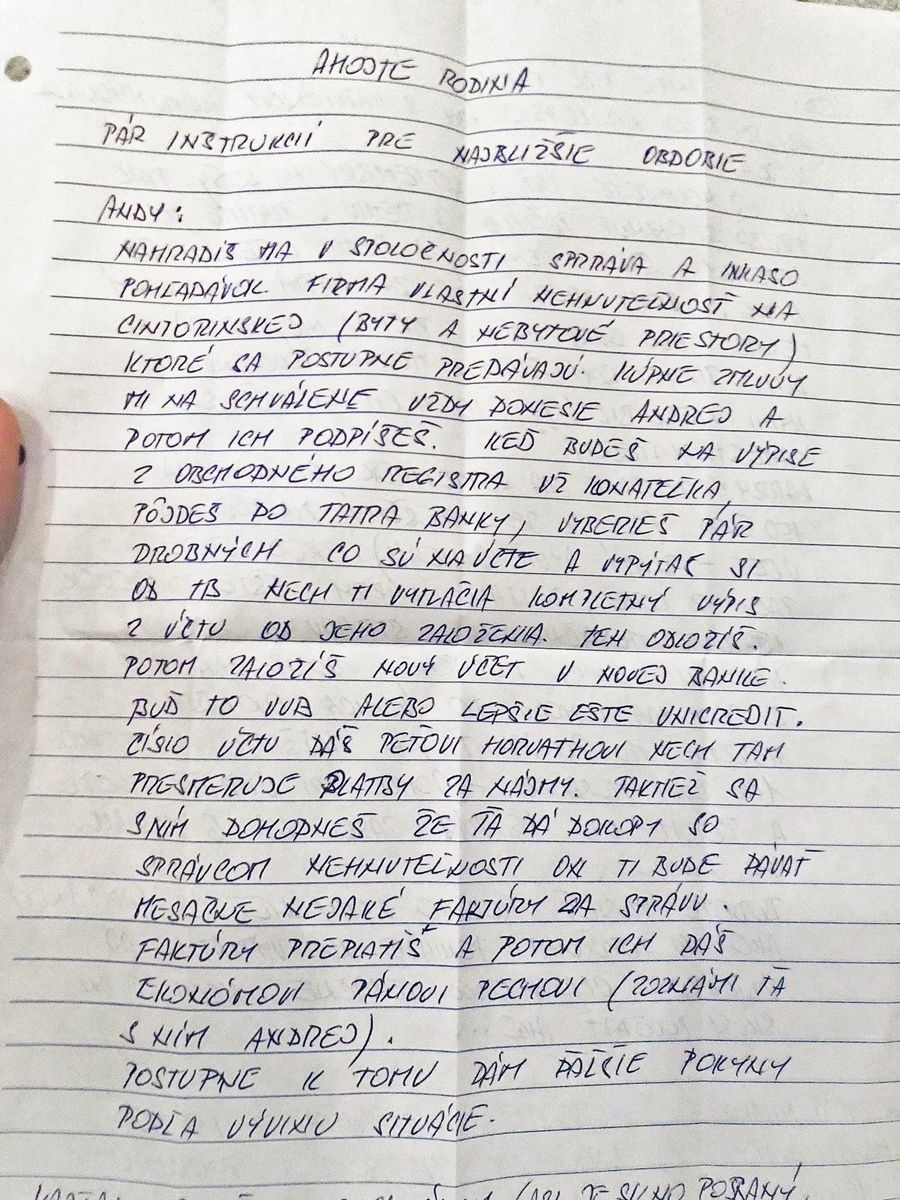 AHOJTE RODINA
PÁR INŠTRUKCIÍ PRE NAJBLIŽŠIE OBDOBIE
ANDY:
NAHRADÍŠ MA V SPOLOČNOSTI SPRÁVA A INKASO
POHĽADÁVOK FIRMA VLASTNÍ NEHNUTEĽNOSŤ NA
CINTORINSKEJ (BYTY A NEBYTOVÉ PRIESTORY)
KTORÉ SA POSTUPNE PREDÁVAJÚ. KÚPNE ZMLUVY
MI NA SCHVÁLENIE VŽDY DONESIE ANDREJ A
POTOM ICH PODPÍŠEŠ. KEĎ BUDEŠ NA VÝPISE
Z OBCHODNÉHO REGISTRA UŽ KONATEĽKA,
PÔJDEŠ DO TATRA BANKY, VYBERIEŠ PÁR
DROBNÝCH ČO SÚ NA ÚČTE A VYPÝTAŠ SI
OD TB NECH TI VYTLAČIA KOMPLETNÝ VÝPIS
Z ÚČTU OD JEHO ZALOŽENIA. TEN ODLOŽÍŠ.
POTOM ZALOŽÍŠ NOVÝ ÚČET V NOVEJ BANKE.
BUĎ TO VUB ALEBO LEPŠIE EŠTE UNICREDIT.
ČÍSLO ÚČTU DÁŠ PEŤOVI HORVATHOVI NECH TAM
PRESMERUJE PLATBY ZA NÁJMY. TAKTIEŽ SA
S NÍM DOHODNEŠ ŽE ŤA DÁ DOKOPY SO
SPRÁVCOM NEHNUTEĽNOSTI ON TI BUDE DÁVAŤ
MESAČNE NEJAKÉ FAKTÚRY ZA SPRÁVU.
FAKTÚRY PREPLATÍŠ A POTOM ICH DÁŠ
EKONÓMOVI PÁNOVI PECHOVI (ZOZNÁMI ŤA
S NÍM ANDREJ).
POSTUPNE K TOMU DÁM ĎALŠIE POKYNY
PODĽA VÝVINU SITUÁCIE.